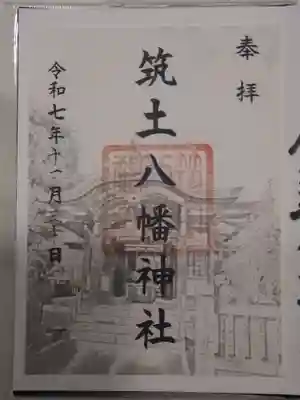 奉拝
筑土八幡神社
令和七年十一月三十日